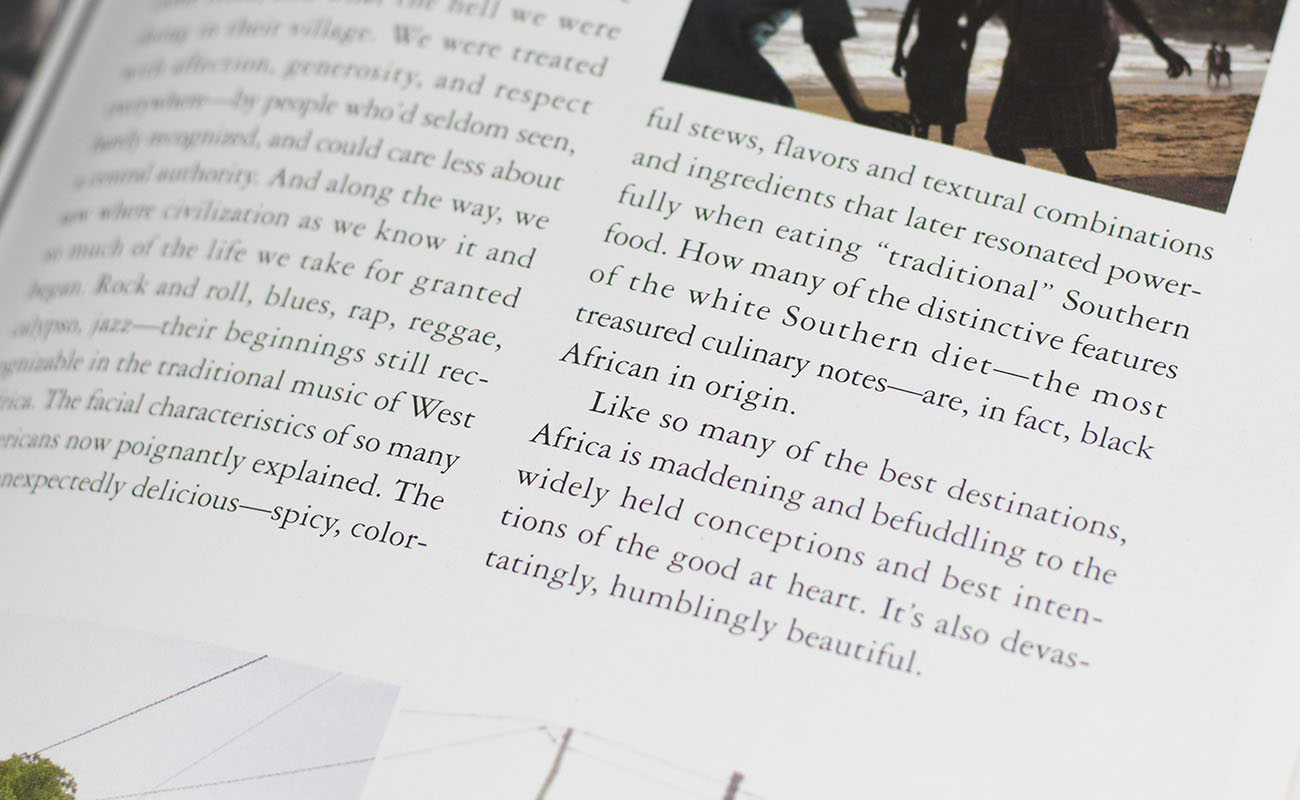 the hell we were
in their village. We were treated
with affection, generosity, and respect
everywhere—by people who'd seldom seen,
barely recognized, and could care less about
a central authority. And along the way, we
saw where civilization as we know it and
so much of the life we take for granted
began. Rock and roll, blues, rap, reggae,
calypso, jazz—their beginnings still rec-
ognizable in the traditional music of West
The facial characteristics of so many
now poignantly explained. The
unexpectedly delicious—spicy, color-
ful stews, flavors and textural combinations
and ingredients that later resonated power-
fully when eating “traditional” Southern
food. How many of the distinctive features
of the white Southern diet—the most
treasured culinary notes—are, in fact, black
African in origin.
Like so many of the best destinations,
Africa is maddening and befuddling to the
widely held conceptions and best inten-
tions of the good at heart. It's also devas-
tatingly, humblingly beautiful.